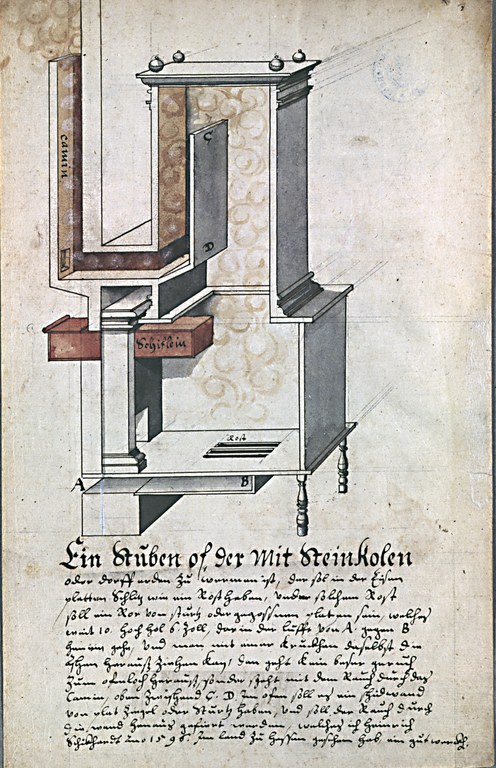 camin
C
D
Schiflein
Rost
A B
Ein Stuben of der Mit Steinkolen
oder dorff erden zu wermen ist, der sol in der Eisin
platten Schlitz wie ein Rost haben, under solchem Rost
soll ein Ror von sturtz oder gegossnen platen sein, welches
weit 10. hoch hol 6 Zoll, dar in der lufft von A gegen B
hinein gehe, und man mit einer kruckhen daselbst die
Eschen herauß ziehen kan, dan geht kein böser geruch
zum ofenloch herauß, sonder mit dem Rauch durch das
Camin, oben zwischend C. D im ofen soll es ein schidwand
von plat Zigel oder Sturtz haben, und soll der Rauch durch
die wend hinauß gefiert werden, welches ich Heinrich
Schickhardt Ano 1598. Im land zu Hessen gesehen hab, ein gut werckh.